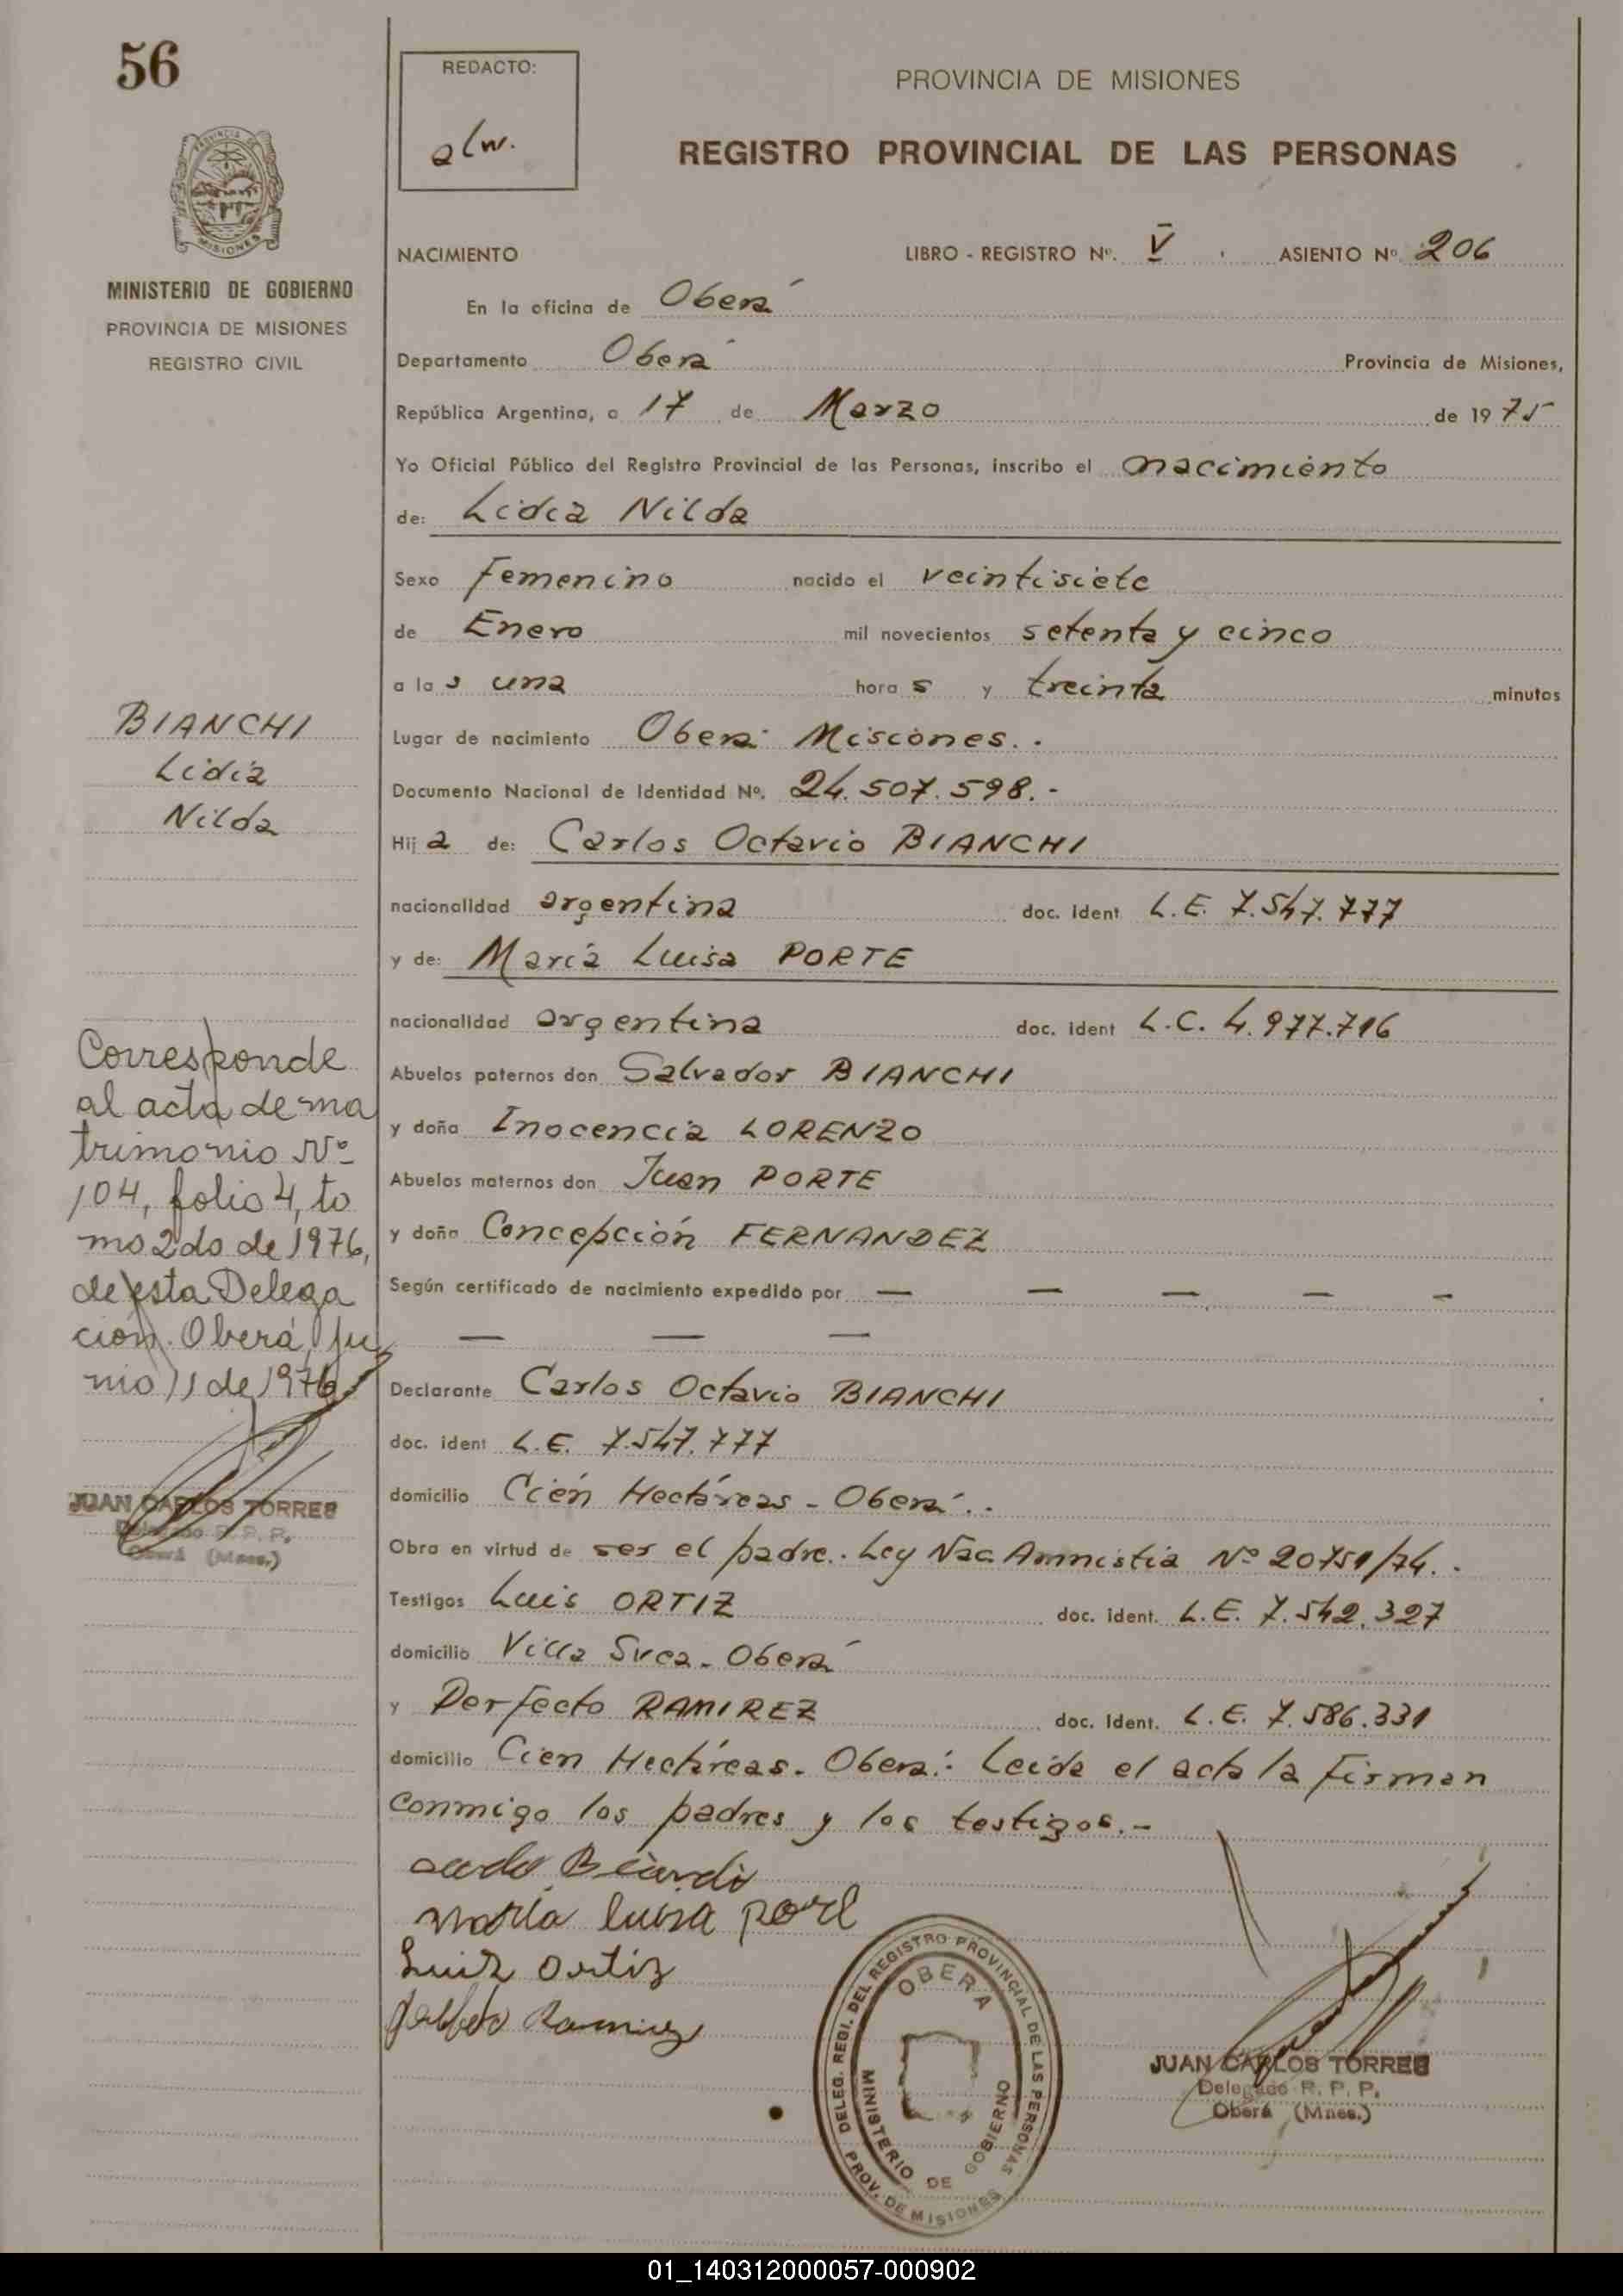 56
REDACTO:
alw.
PROVINCIA DE MISIONES
REGISTRO PROVINCIAL DE LAS PERSONAS
PROVINCIA
MISIONES
MINISTERIO DE GOBIERNO
PROVINCIA DE MISIONES
REGISTRO CIVIL
NACIMIENTO LIBRO - REGISTRO Nº. V ASIENTO Nº 206
En la oficina de Oberá
Departamento Oberá Provincia de Misiones,
República Argentina, a 17 de Marzo de 1975
Yo Oficial Público del Registro Provincial de las Personas, inscribo el nacimiento
de: Lidia Nilda
Sexo Femenino nacido el veintisiete
de Enero mil novecientos setenta y cinco
a las una horas y treinta minutos
Lugar de nacimiento Oberá Misiones.-
Documento Nacional de Identidad Nº. 24.507.598.-
Hija de: Carlos Octavio BIANCHI
nacionalidad argentina doc. ident L.E. 7.547.777
y de: María Luisa PORTE
nacionalidad argentina doc. ident L.C. 4.977.716
Abuelos paternos don Salvador BIANCHI
y doña Inocencia LORENZO
Abuelos maternos don Juan PORTE
y doña Concepción FERNANDEZ
Según certificado de nacimiento expedido por — — — — —
— — —
Declarante Carlos Octavio BIANCHI
doc. ident L.E. 7.547.777
domicilio Cién Hectáreas - Oberá.-
Obra en virtud de ser el padre.- Ley Nac. Amnistia Nº 20751/74.-
Testigos Luis ORTIZ doc. ident. L.E. 7.542.327
domicilio Villa Svea - Oberá
y Perfecto RAMIREZ doc. Ident. L.E. 7.586.331
domicilio Cien Hectáreas - Oberá.- Leida el acta la firman
conmigo los padres y los testigos.-
María luisa port
Luis Ortiz
Ramirez
BIANCHI
Lidia
Nilda
Corresponde
al acta de ma
trimonio Nº
104, folio 4, to
mo 2do de 1976,
de esta Delega
ción. Oberá, ju
nio 11 de 1976
JUAN CARLOS TORRES
Delegado R. P. P.
Oberá (Mnes.)
DELEG. REGI. DEL REGISTRO PROVINCIAL DE LAS PERSONAS
OBERA
MINISTERIO DE GOBIERNO
PROV. DE MISIONES
JUAN CARLOS TORRES
Delegado R. P. P.
Oberá (Mnes.)
01_140312000057-000902